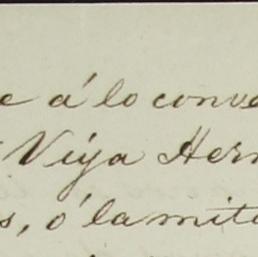 e á lo conve
Veija Her
s, ó la mita